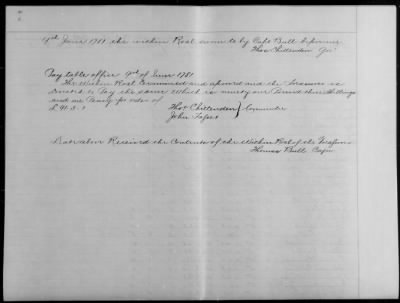 4th June 1781 the within Roal sworn to by Capt Bull before me
Thos Chittenden Govr
Pay table office 9th of June 1781
The Within Roal Examined and aproved and the Treasurer is
Directed to Pay the same Which is ninety one Pound three Shillings
and one Penny
L 91.3.1
Thos Chittenden } Committee
John Fasset
Received the Contents of the Within Roal of the Treasurer
Thomas Bull Capn